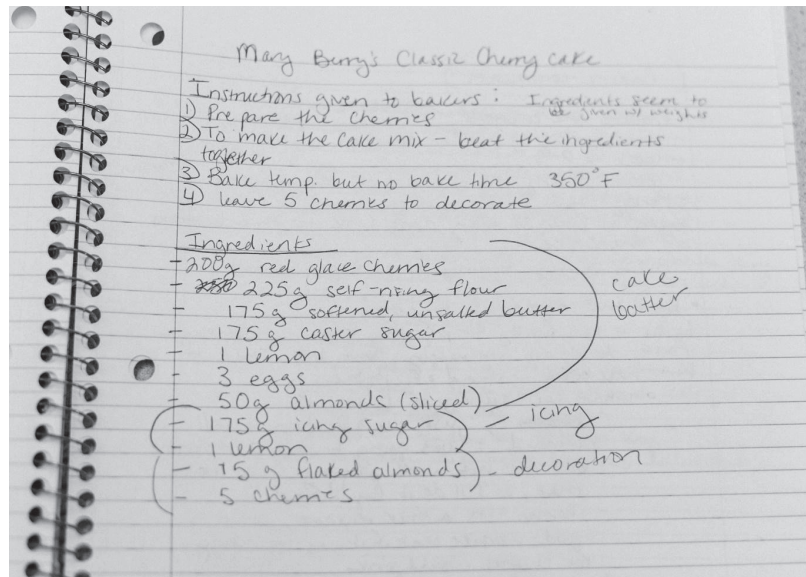 Mary Berry's Classic Cherry Cake
Instructions given to bakers: Ingredients seem to
be given w/ weights
1) Prepare the cherries
2) To make the cake mix – beat the ingredients
together
3) Bake temp. but no bake time 350°F
4) leave 5 cherries to decorate
Ingredients
- 200g red glace cherries
- 225g self-rising flour
- 175g softened, unsalted butter
- 175g caster sugar
- 1 lemon
- 3 eggs
- 50g almonds (sliced)
cake
batter
- 175g icing sugar
- 1 lemon
= icing
- 15g flaked almonds
- 5 cherries
- decoration